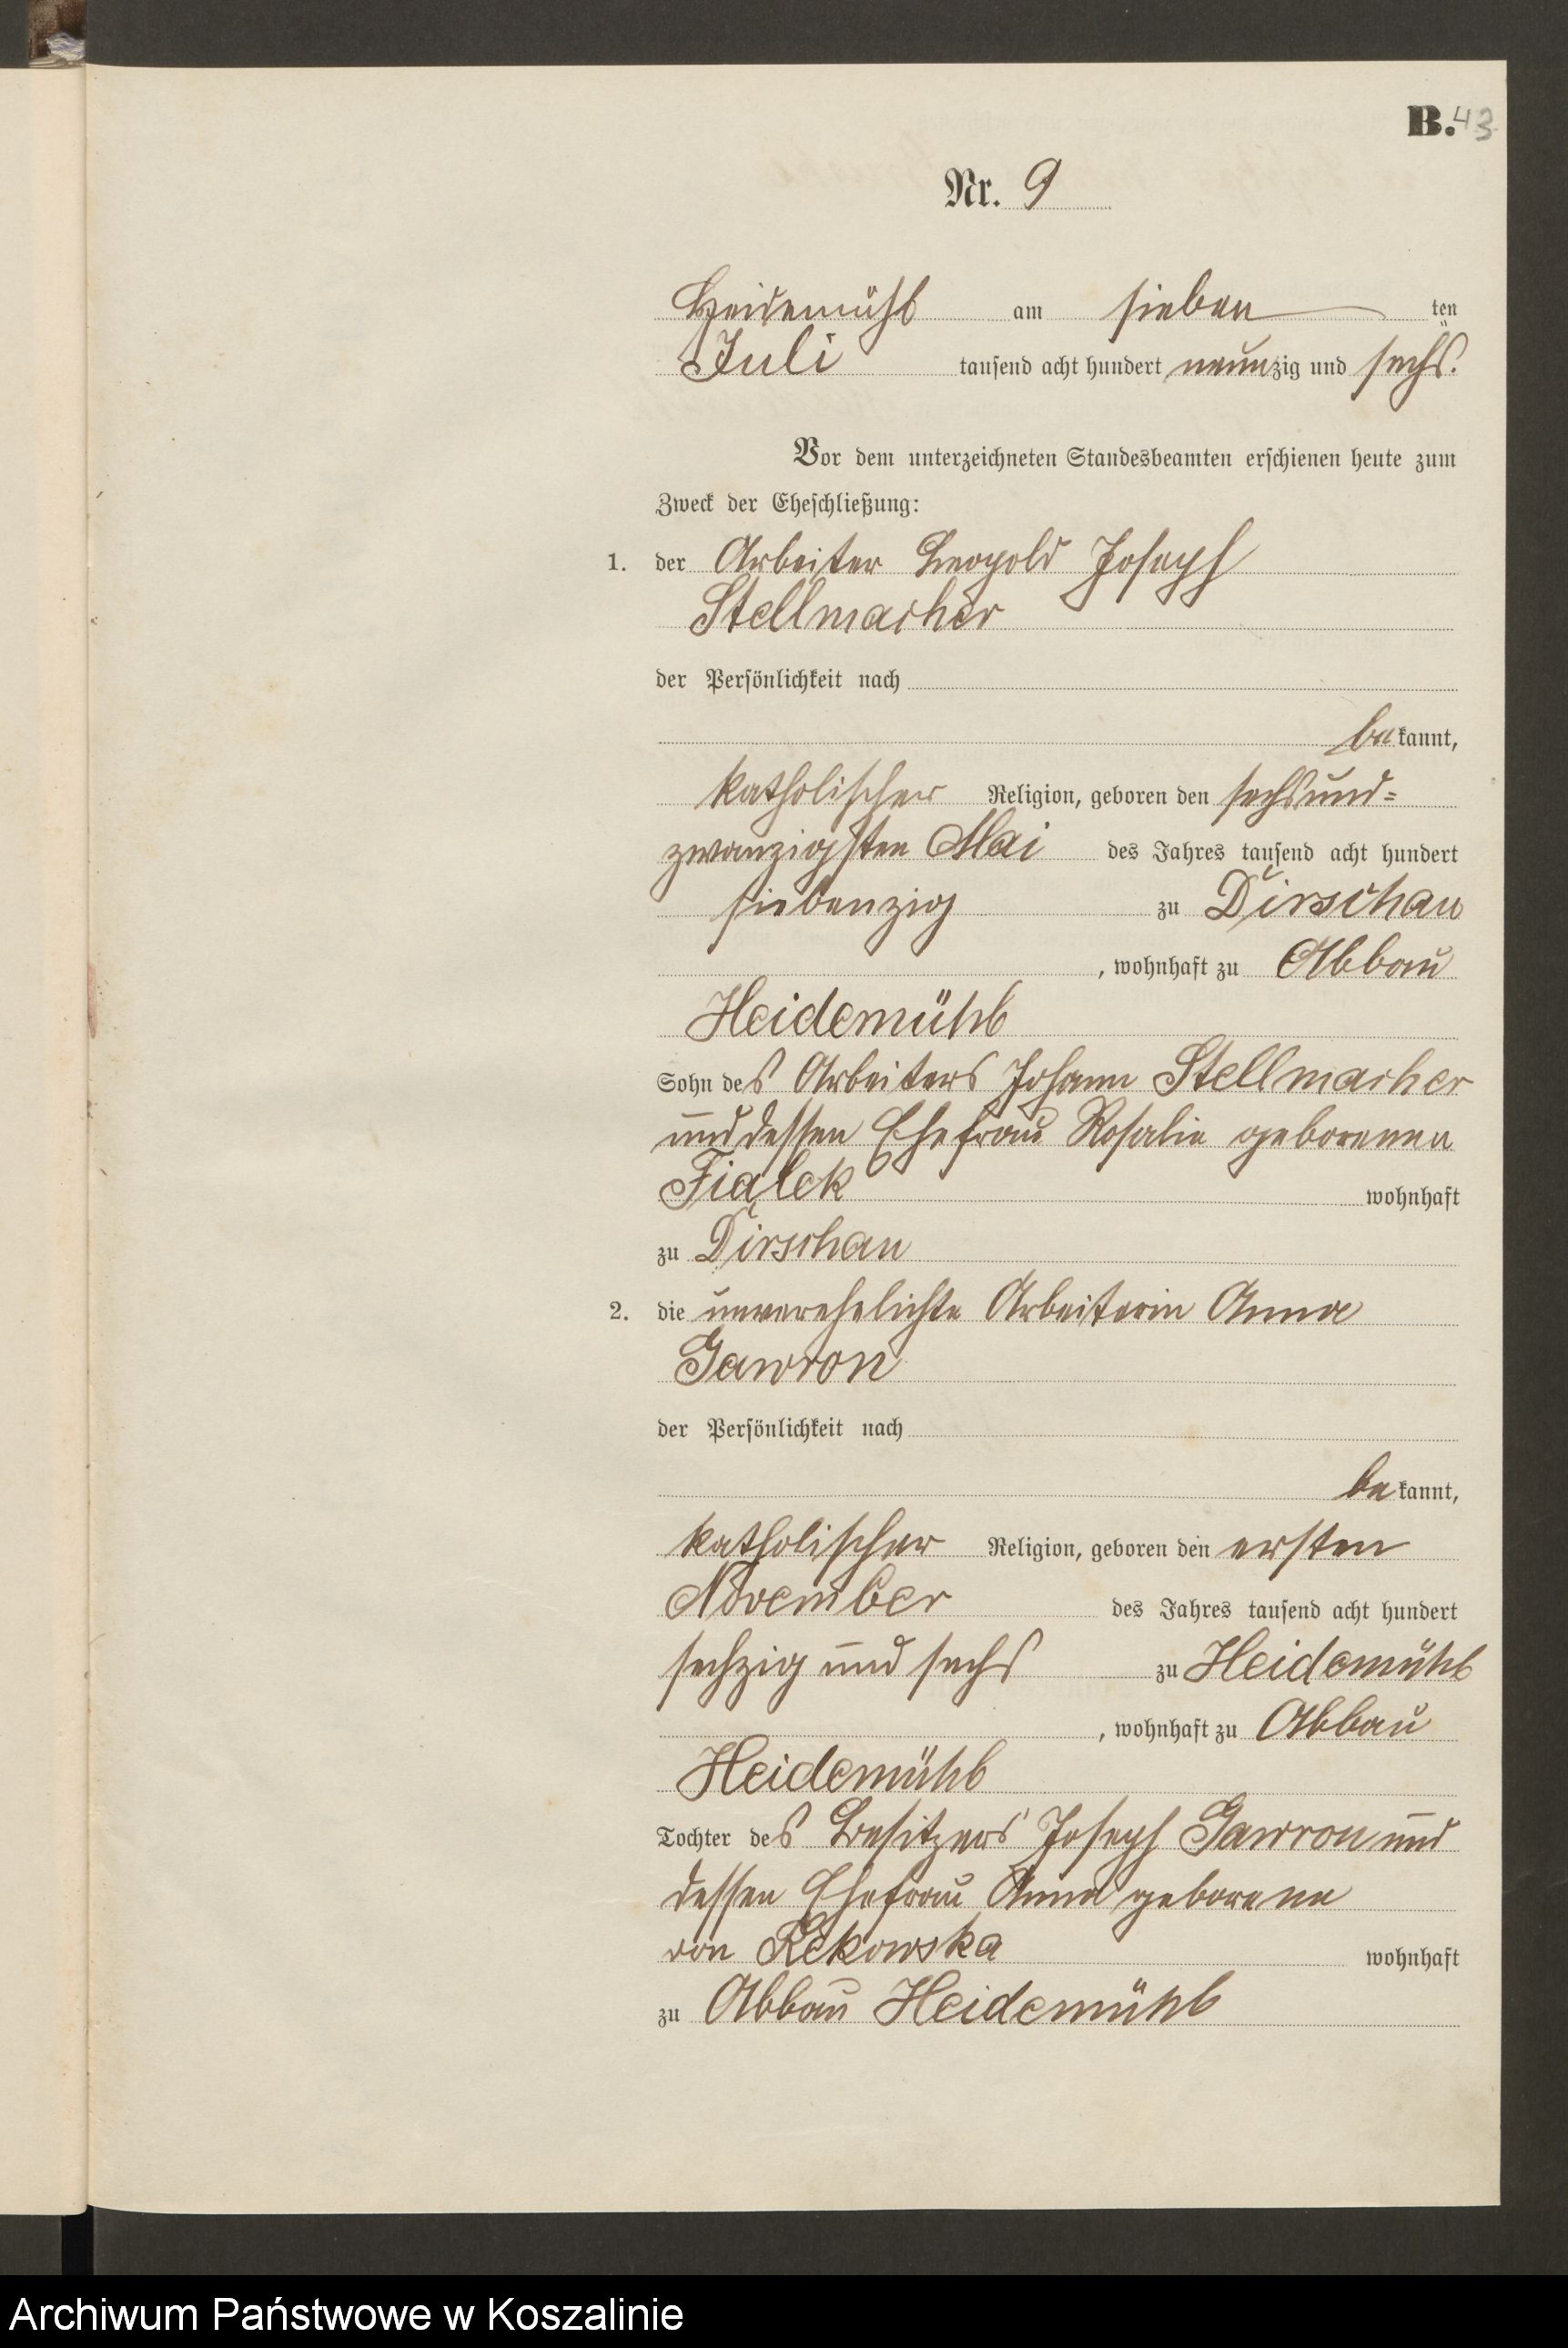 B. 43
Nr. 9
Heidemühl am sieben ten
Juli tausend acht hundert neunzig und sechs.
Vor dem unterzeichneten Standesbeamten erschienen heute zum
Zweck der Eheschließung:
1. der Arbeiter Leopold Joseph
Stellmacher
der Persönlichkeit nach
bekannt,
katholischer Religion, geboren den sechsund=
zwanzigsten Mai des Jahres tausend acht hundert
siebenzig zu Dirschau
, wohnhaft zu Abbau
Heidemühl
Sohn des Arbeiters Johann Stellmacher
und dessen Ehefrau Rosalie geborenen
Fialek wohnhaft
zu Dirschau
2. die unverehelichte Arbeiterin Anna
Gawron
der Persönlichkeit nach
bekannt,
katholischer Religion, geboren den ersten
November des Jahres tausend acht hundert
sechzig und sechs zu Heidemühl
, wohnhaft zu Abbau
Heidemühl
Tochter des Besitzers Joseph Gawron und
dessen Ehefrau Anna geborene
von Rekowska wohnhaft
zu Abbau Heidemühl
Archiwum Państwowe w Koszalinie